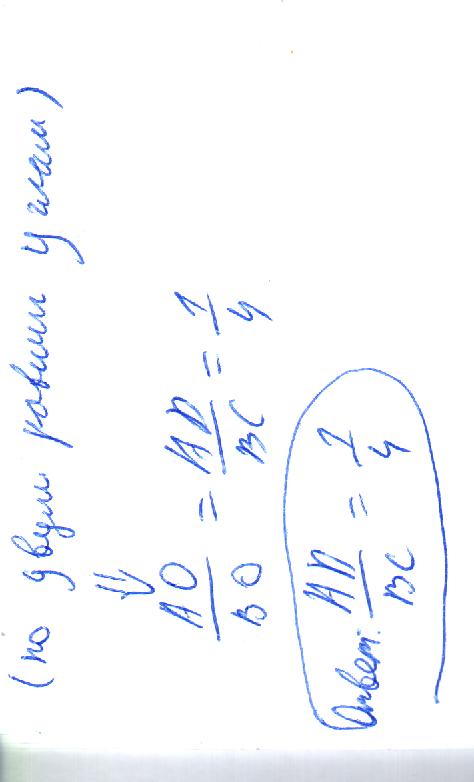 (по двум равным углам)
⇓
AO/BO = AD/BC = 1/4
Ответ: AD/BC = 1/4